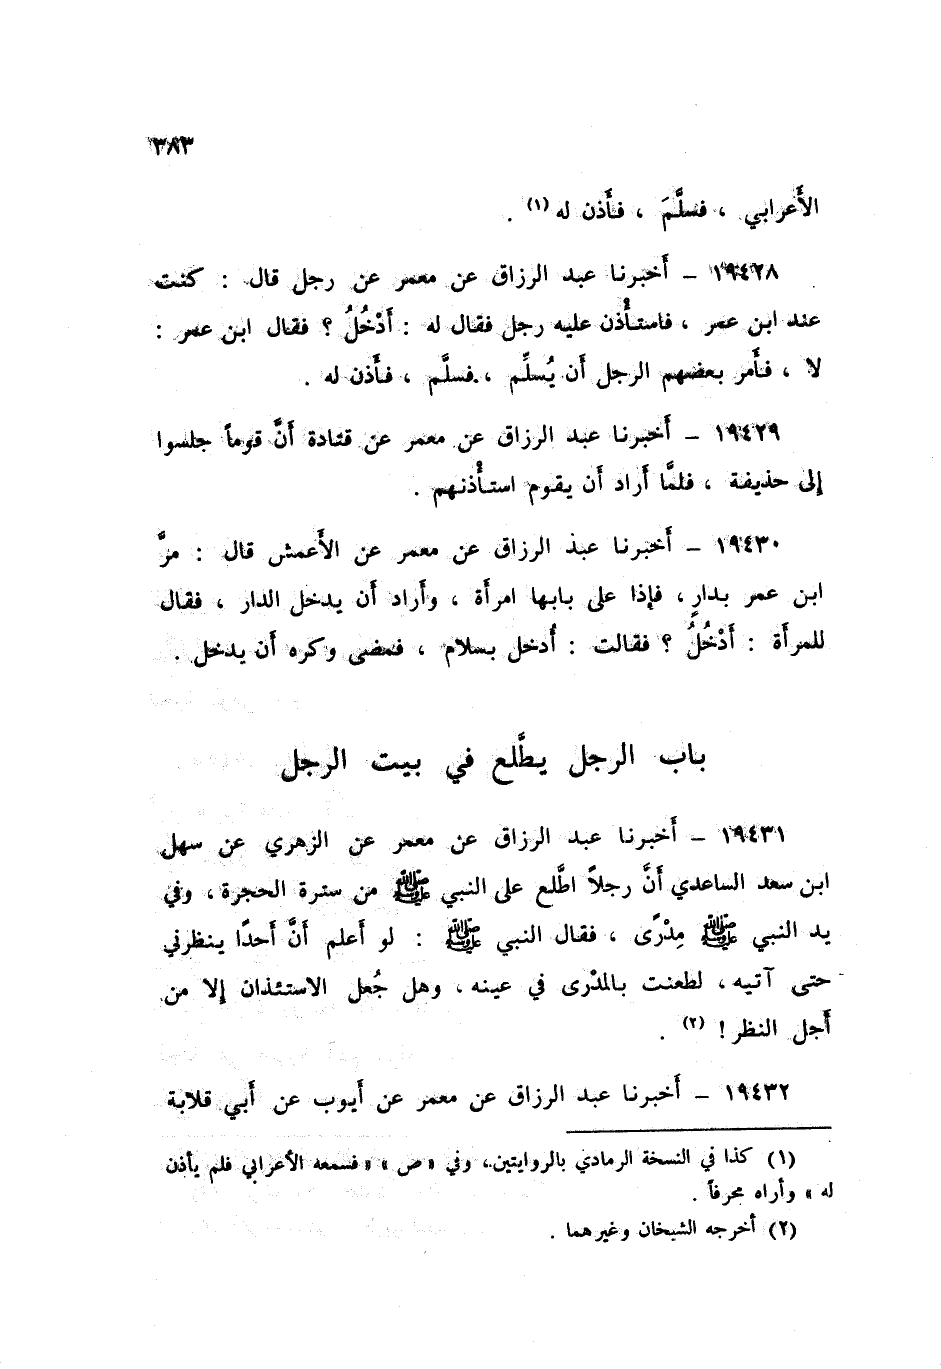 ٣٨٣
الأَعرابي ، فسلَّمَ ، فأَذن له (١) .
١٩٤٢٨ – أَخبرنا عبد الرزاق عن معمر عن رجل قال : كنت
عند ابن عمر ، فاستأْذن عليه رجل فقال له : أَدْخُلُ ؟ فقال ابن عمر :
لا ، فأَمر بعضهم الرجل أَن يُسلِّم ، فسلَّم ، فأَذن له .
١٩٤٢٩ – أَخبرنا عبد الرزاق عن معمر عن قتادة أَنَّ قوماً جلسوا
إلى حذيفة ، فلمَّا أَراد أَن يقوم استأْذنهم .
١٩٤٣٠ – أَخبرنا عبد الرزاق عن معمر عن الأَعمش قال : مرَّ
ابن عمر بدارٍ ، فإذا على بابها امرأَة ، وأَراد أَن يدخل الدار ، فقال
للمرأَة : أَدْخُلُ ؟ فقالت : أُدخل بسلام ، فمضى وكره أَن يدخل .
باب الرجل يطَّلع في بيت الرجل
١٩٤٣١ – أَخبرنا عبد الرزاق عن معمر عن الزهري عن سهل
ابن سعد الساعدي أَنَّ رجلاً اطَّلع على النبي ﷺ من سترة الحجرة ، وفي
يد النبي ﷺ مِدْرًى ، فقال النبي ﷺ : لو أَعلم أَنَّ أَحدًا ينظرني
حتى آتيه ، لطعنت بالمدْرى في عينه ، وهل جُعل الاستئذان إلا من
أَجل النظر ! (٢) .
١٩٤٣٢ – أَخبرنا عبد الرزاق عن معمر عن أَيوب عن أَبي قلابة
(١) كذا في النسخة الرمادي بالروايتين، وفي « ص » « فسمعه الأعرابي فلم يأذن
له » وأراه محرفاً .
(٢) أخرجه الشيخان وغيرهما .